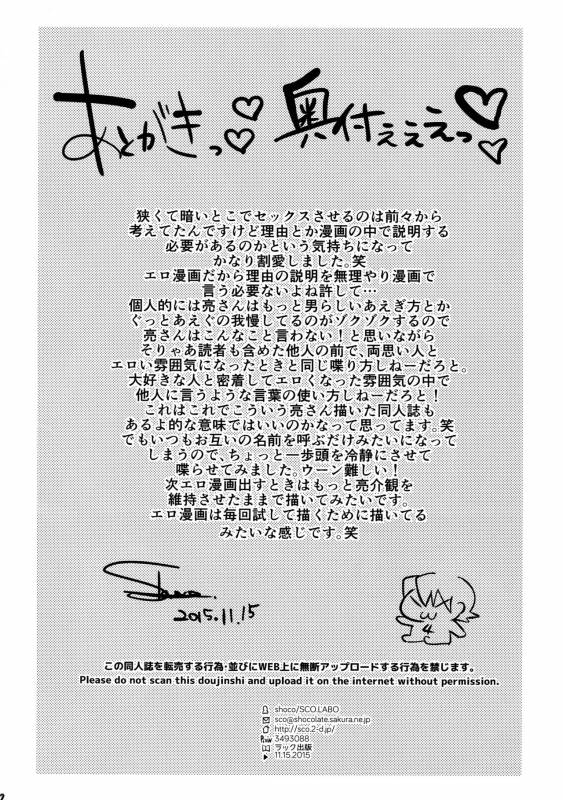 あとがきっ♡♡ 奥付えええっ♡♡
狭くて暗いとこでセックスさせるのは前々から
考えてたんですけど理由とか漫画の中で説明する
必要があるのかという気持ちになって
かなり割愛しました。笑
エロ漫画だから理由の説明を無理やり漫画で
言う必要ないよね許して…
個人的には亮さんはもっと男らしいあえぎ方とか
ぐっとあえぐの我慢してるのがゾクゾクするので
亮さんはこんなこと言わない！と思いながら
そりゃあ読者も含めた他人の前で、両思い人と
エロい雰囲気になったときと同じ喋り方しねーだろと。
大好きな人と密着してエロくなった雰囲気の中で
他人に言うような言葉の使い方しねーだろと！
これはこれでこういう亮さん描いた同人誌も
あるよ的な意味ではいいのかなって思ってます。笑
でもいつもお互いの名前を呼ぶだけみたいになって
しまうので、ちょっと一歩頭を冷静にさせて
喋らせてみました。ウーン難しい！
次エロ漫画出すときはもっと亮介観を
維持させたままで描いてみたいです。
エロ漫画は毎回試して描くために描いてる
みたいな感じです。笑
2015.11.15
4
この同人誌を転売する行為・並びにWEB上に無断アップロードする行為を禁じます。
Please do not scan this doujinshi and upload it on the internet without permission.
shoco/SCO.LABO
sco@shocolate.sakura.ne.jp
http://sco.2-d.jp/
3493088
ラック出版
11.15.2015